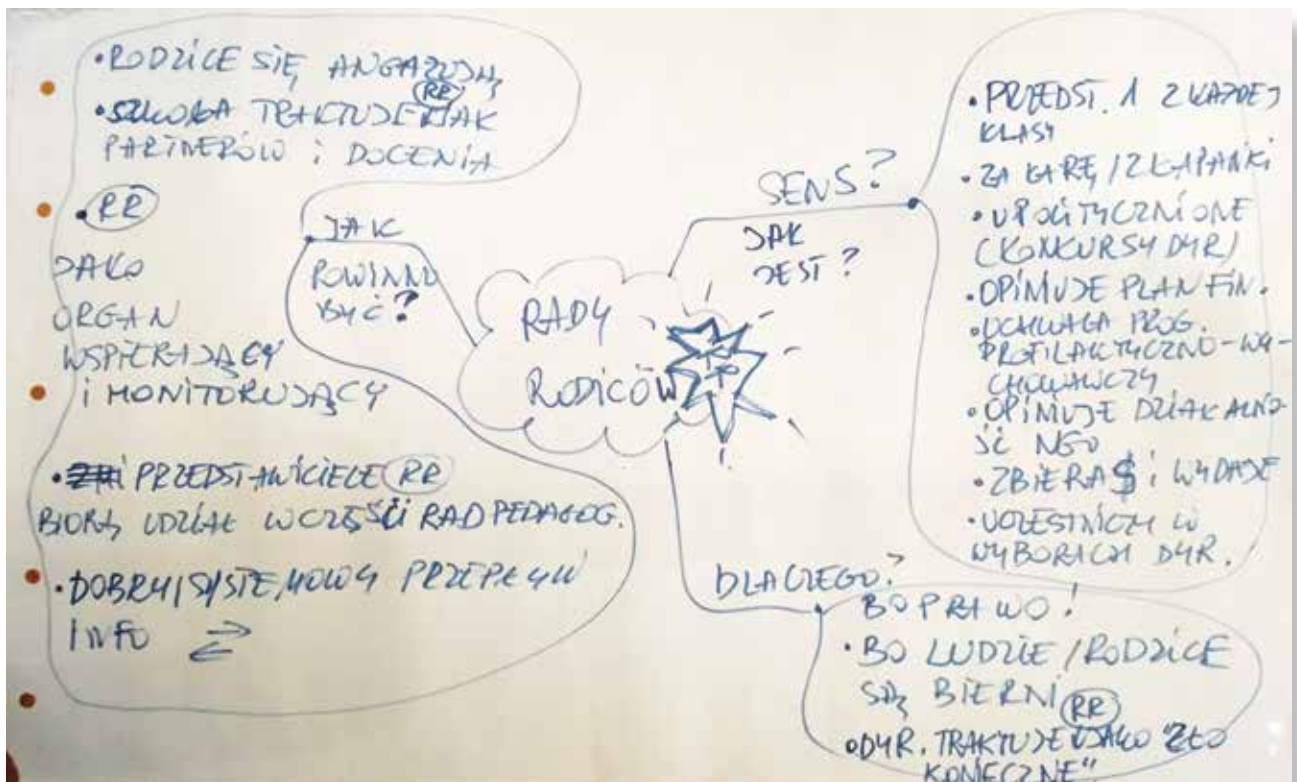 RADY
RODICÓW
JAK
POWINNO
BYĆ?
• RODZICE SIĘ ANGAŻUJĄ
• SZKOŁA TRAKTUJE RR JAK
PARTNERÓW i DOCENIA
• RR
JAKO
ORGAN
WSPIERAJĄCY
i MONITORUJĄCY
• PRZEDSTAWICIELE RR
BIORĄ UDZIAŁ W CZĘŚCI RAD PEDAGOG.
• DOBRY/SYSTEMOWY PRZEPŁYW
INFO
SENS?
JAK
JEST?
• PRZEDST. 1 Z KAŻDEJ
KLASY
• ZA KARĘ / Z ŁAPANKI
• UPOLITYCZNIONE
(KONKURSY DYR)
• OPINIUJE PLAN FIN.
• UCHWALA PROG.
PROFILAKTYCZNO-WY-
CHOWAWCZY
• OPINIUJE DZIAŁALNO-
ŚĆ NGO
• ZBIERA $ i WYDAJE
• UCZESTNICZY W
WYBORACH DYR.
DLACZEGO?
BO PRAWO!
• BO LUDZIE / RODZICE
SĄ BIERNI
• DYR. TRAKTUJE RR JAKO "ZŁO
KONIECZNE"